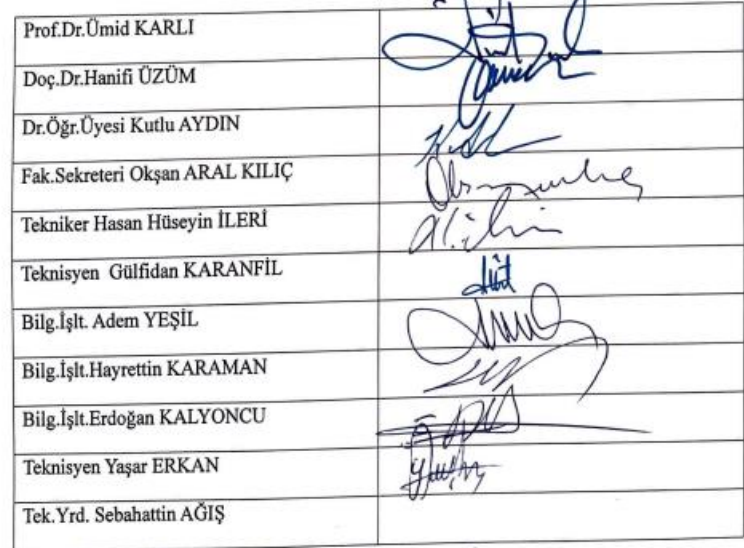 Prof.Dr.Ümid KARLI
Doç.Dr.Hanifi ÜZÜM
Dr.Öğr.Üyesi Kutlu AYDIN
Fak.Sekreteri Okşan ARAL KILIÇ
Tekniker Hasan Hüseyin İLERİ
Teknisyen Gülfidan KARANFİL
Bilg.İşlt. Adem YEŞİL
Bilg.İşlt.Hayrettin KARAMAN
Bilg.İşlt.Erdoğan KALYONCU
Teknisyen Yaşar ERKAN
Tek.Yrd. Sebahattin AĞIŞ